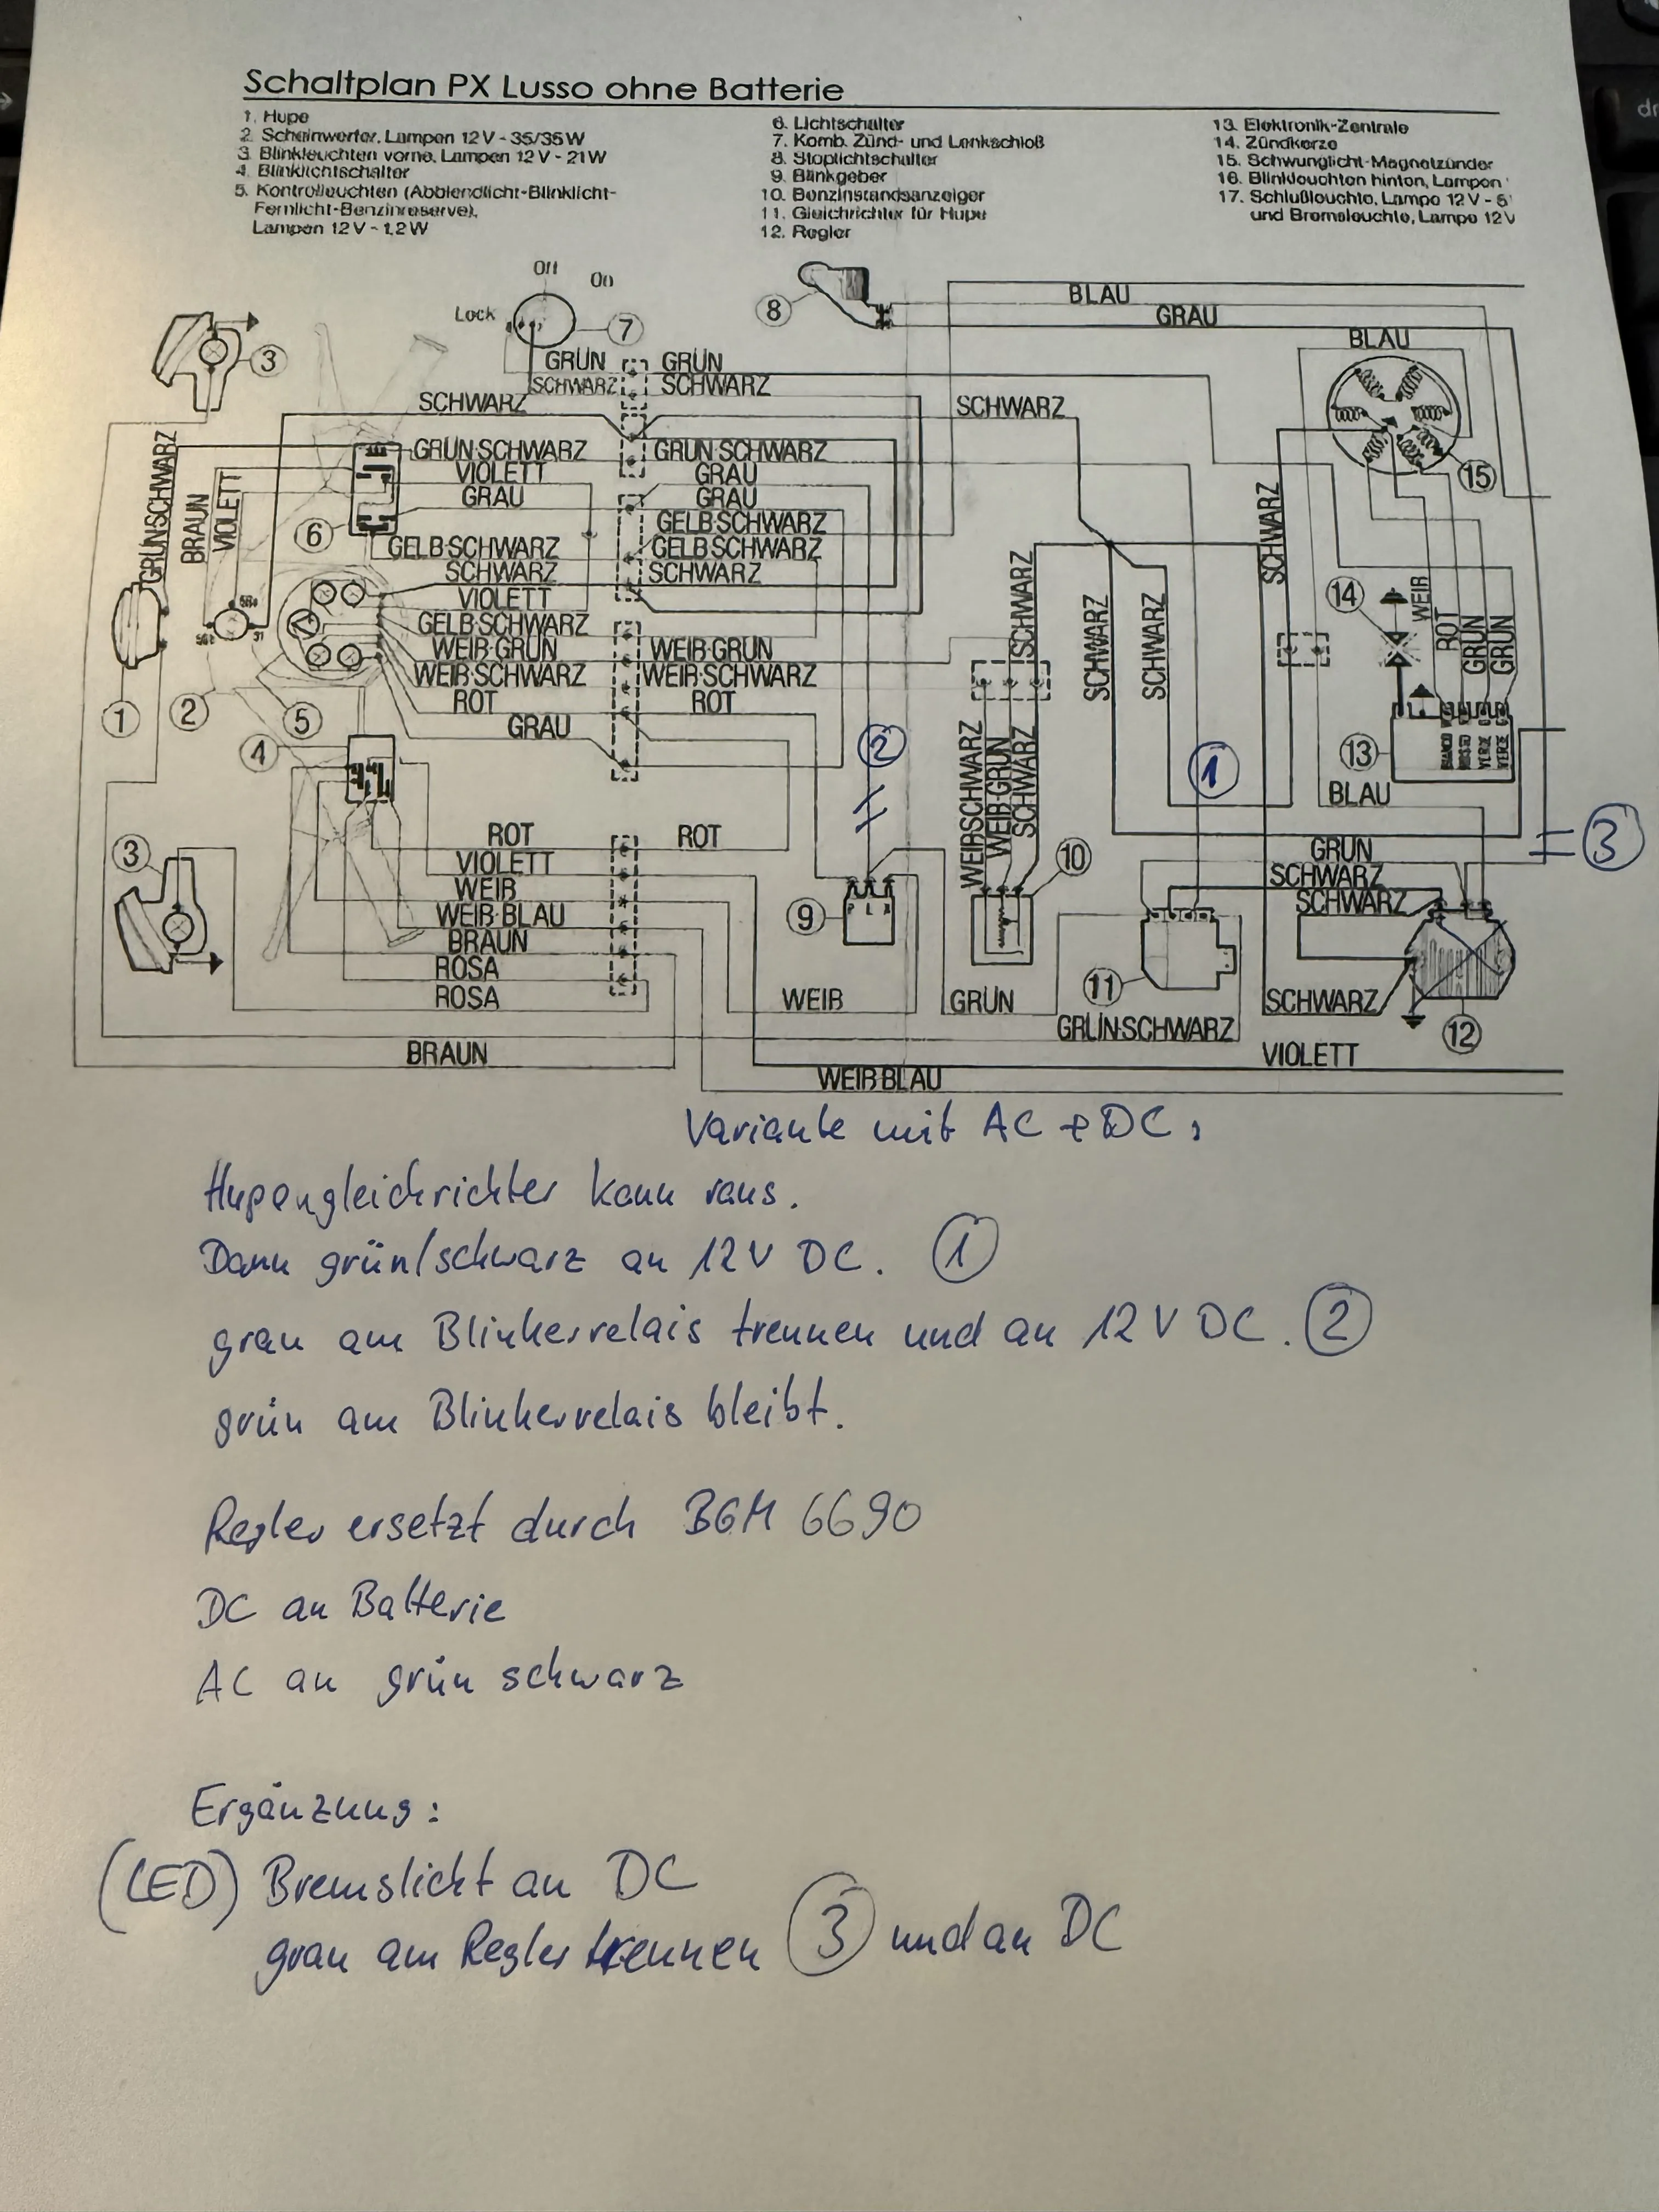 Schaltplan PX Lusso ohne Batterie
1. Hupe
2. Scheinwerfer, Lampen 12 V - 35/35 W
3. Blinkleuchten vorne, Lampen 12 V - 21 W
4. Blinklichtschalter
5. Kontrolleuchten (Abblendlicht-Blinklicht-
Fernlicht-Benzinreserve),
Lampen 12 V - 1,2 W
6. Lichtschalter
7. Komb. Zünd- und Lenkschloß
8. Stoplichtschalter
9. Blinkgeber
10. Benzinstandsanzeiger
11. Gleichrichter für Hupe
12. Regler
13. Elektronik-Zentrale
14. Zündkerze
15. Schwunglicht-Magnetzünder
16. Blinkleuchten hinten, Lampen
17. Schlußleuchte, Lampe 12 V - 5
und Bremsleuchte, Lampe 12 V
Off
On
Lock
7
8
BLAU
GRAU
BLAU
3
GRÜN GRÜN
SCHWARZ SCHWARZ
SCHWARZ
SCHWARZ
GRÜN·SCHWARZ
BRAUN
VIOLETT
GRÜN·SCHWARZ GRÜN·SCHWARZ
VIOLETT GRAU
GRAU GRAU
GELB·SCHWARZ
6
GELB·SCHWARZ GELB·SCHWARZ
SCHWARZ SCHWARZ
VIOLETT
GELB·SCHWARZ
WEIß·GRÜN WEIß·GRÜN
WEIß·SCHWARZ WEIß·SCHWARZ
ROT ROT
GRAU
15
SCHWARZ
SCHWARZ
SCHWARZ
SCHWARZ
14
WEIß
ROT
GRÜN
GRÜN
1
2
5
4
2
1
WEIß·SCHWARZ
WEIß·GRÜN
SCHWARZ
13
BIANCO
ROSSO
VERDE
VERDE
BLAU
3
3
ROT ROT
VIOLETT
WEIß
WEIß·BLAU
BRAUN
ROSA
ROSA
9
10
GRÜN
SCHWARZ
SCHWARZ
11
WEIß
GRÜN
SCHWARZ
GRÜN·SCHWARZ
12
BRAUN
VIOLETT
WEIß·BLAU
Variante mit AC + DC:
Hupengleichrichter kann raus.
Dann grün/schwarz an 12V DC. 1
grau am Blinkerrelais trennen und an 12 V DC. 2
grün am Blinkerrelais bleibt.
Regler ersetzt durch BGM 6690
DC an Batterie
AC an grün schwarz
Ergänzung:
(LED) Bremslicht an DC
grau am Regler trennen 3 und an DC